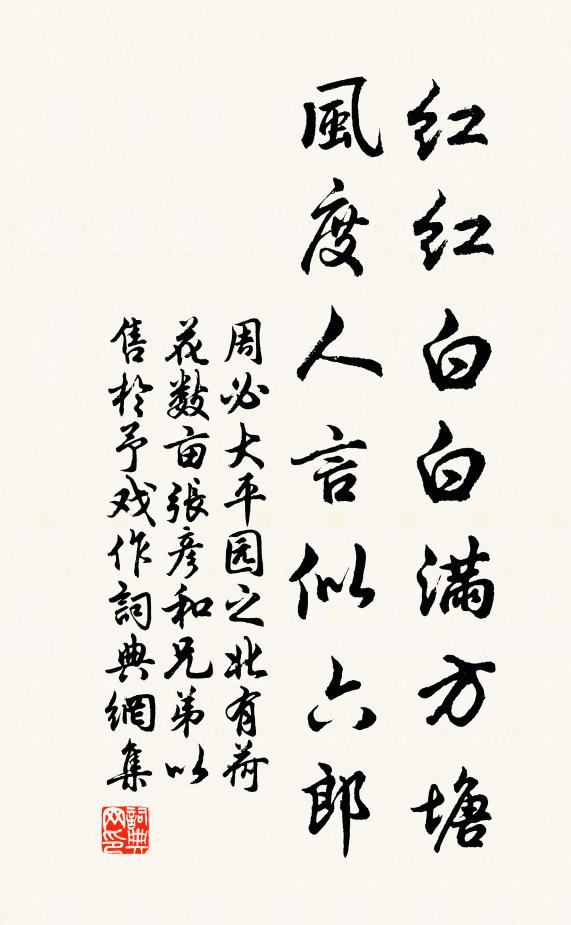 红红白白满方塘
風度人言似六郎
周必大平园之北有荷
花数亩張彦和兄弟以
售於予戏作詞典網集
詞典网印